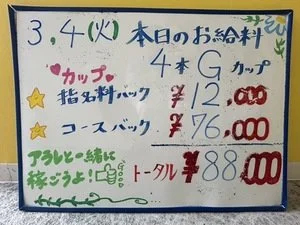 3,4(火) 本日のお給料
カップ 4本 Gカップ
指名料バック ¥12,000
コースバック ¥76,000
アラレと一緒に
稼ごうよ!
トータル ¥88,000